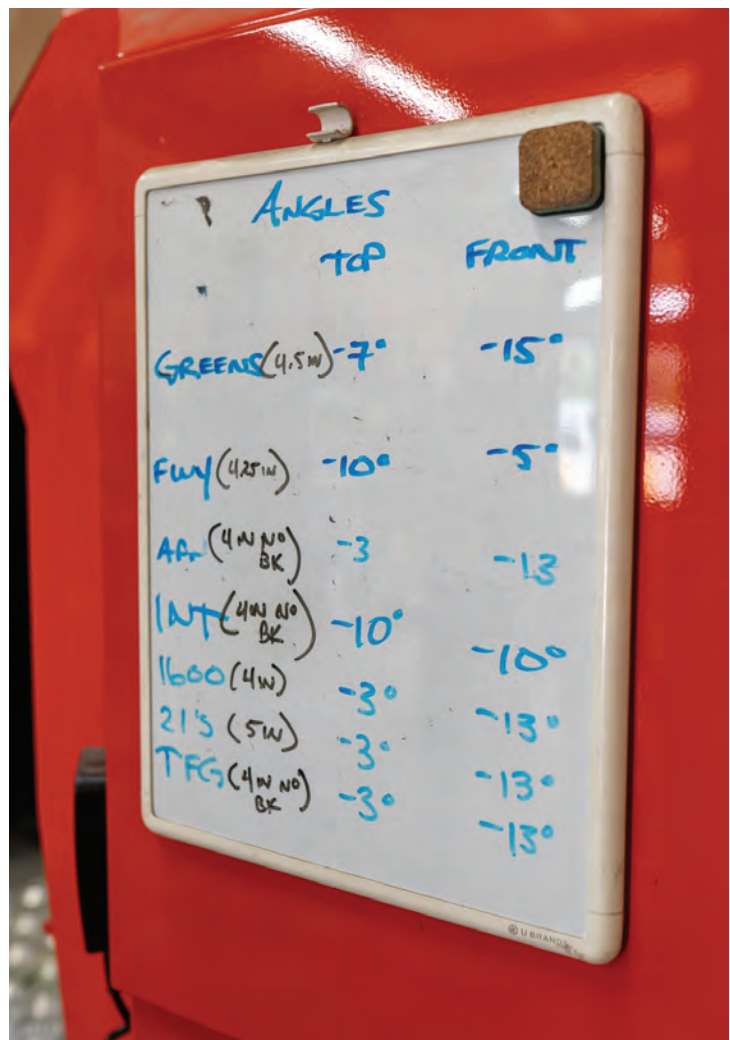 ANGLES
TOP FRONT
GREENS (4.5 IN) -7° -15°
FWY (4.25 IN) -10° -5°
APr (4 IN NO BK) -3 -13
INT (4 IN NO BK) -10° -10°
1600 (4 IN) -3° -13°
21'S (5 IN) -3° -13°
TFG (4 IN NO BK) -3° -13°
U BRANDS